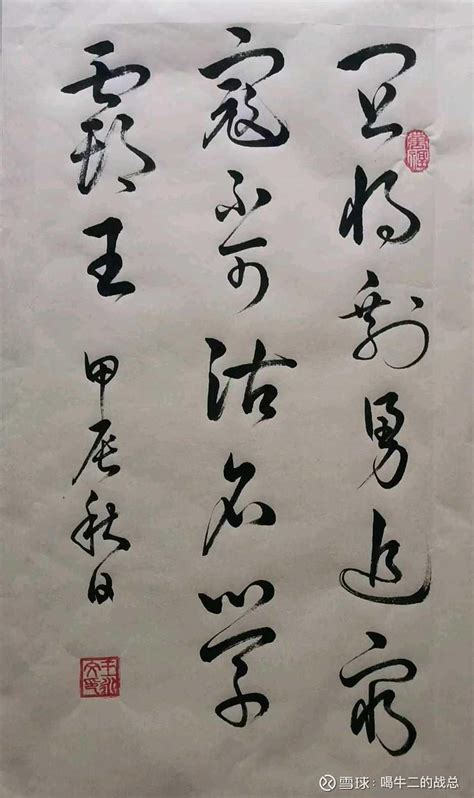 宜将剩勇追穷
寇不可沽名学
霸王
甲辰秋日
雪球：喝牛二的战总